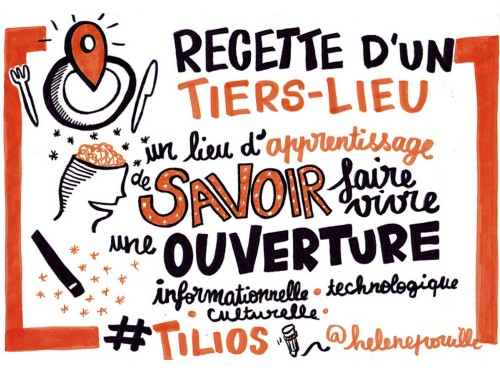 RECETTE D'UN
TIERS-LIEU
un lieu d'apprentissage
de SAVOIR faire
vivre
une OUVERTURE
informationnelle · technologique
· culturelle ·
#TILIOS @helenepouille